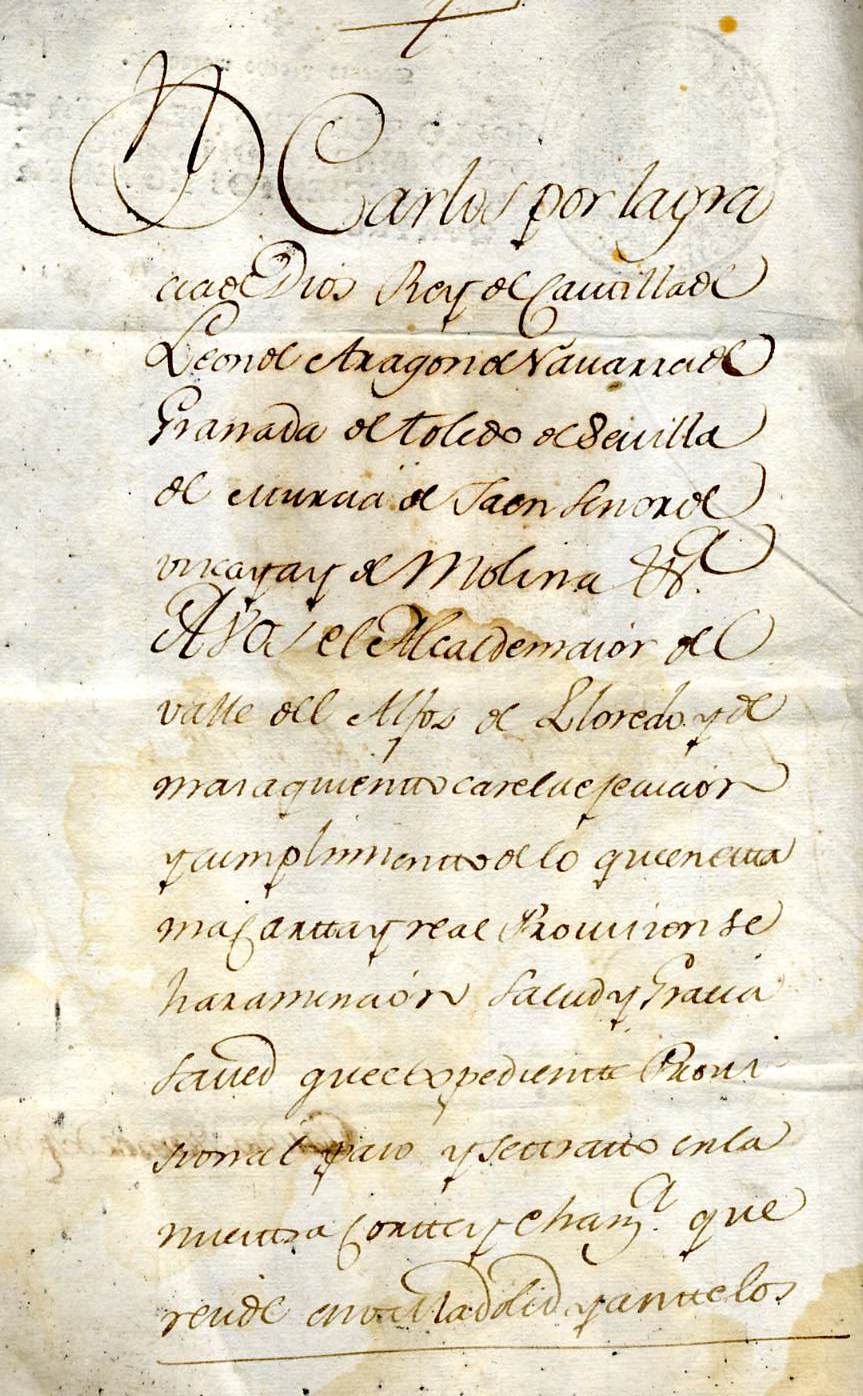 Dn Carlos por la gra
cia de Dios Rey de Castilla de
Leon de Aragon de Navarra de
Granada de toledo de Sevilla
de Murcia de Jaen señor de
vizcaya y de Molina &a
A vos el Alcalde maior del
valle del Alfos de Lloredo y de
mas a quien tocare la ejecucion
y cumplimientto de lo que en estta
nra Cartta y real Provision se
hara mencion salud y Gracia
saved que expedientte Provi
sional paso y se tratto en la
nuestra Cortte y chanza. que
reside en valladolid y antte los